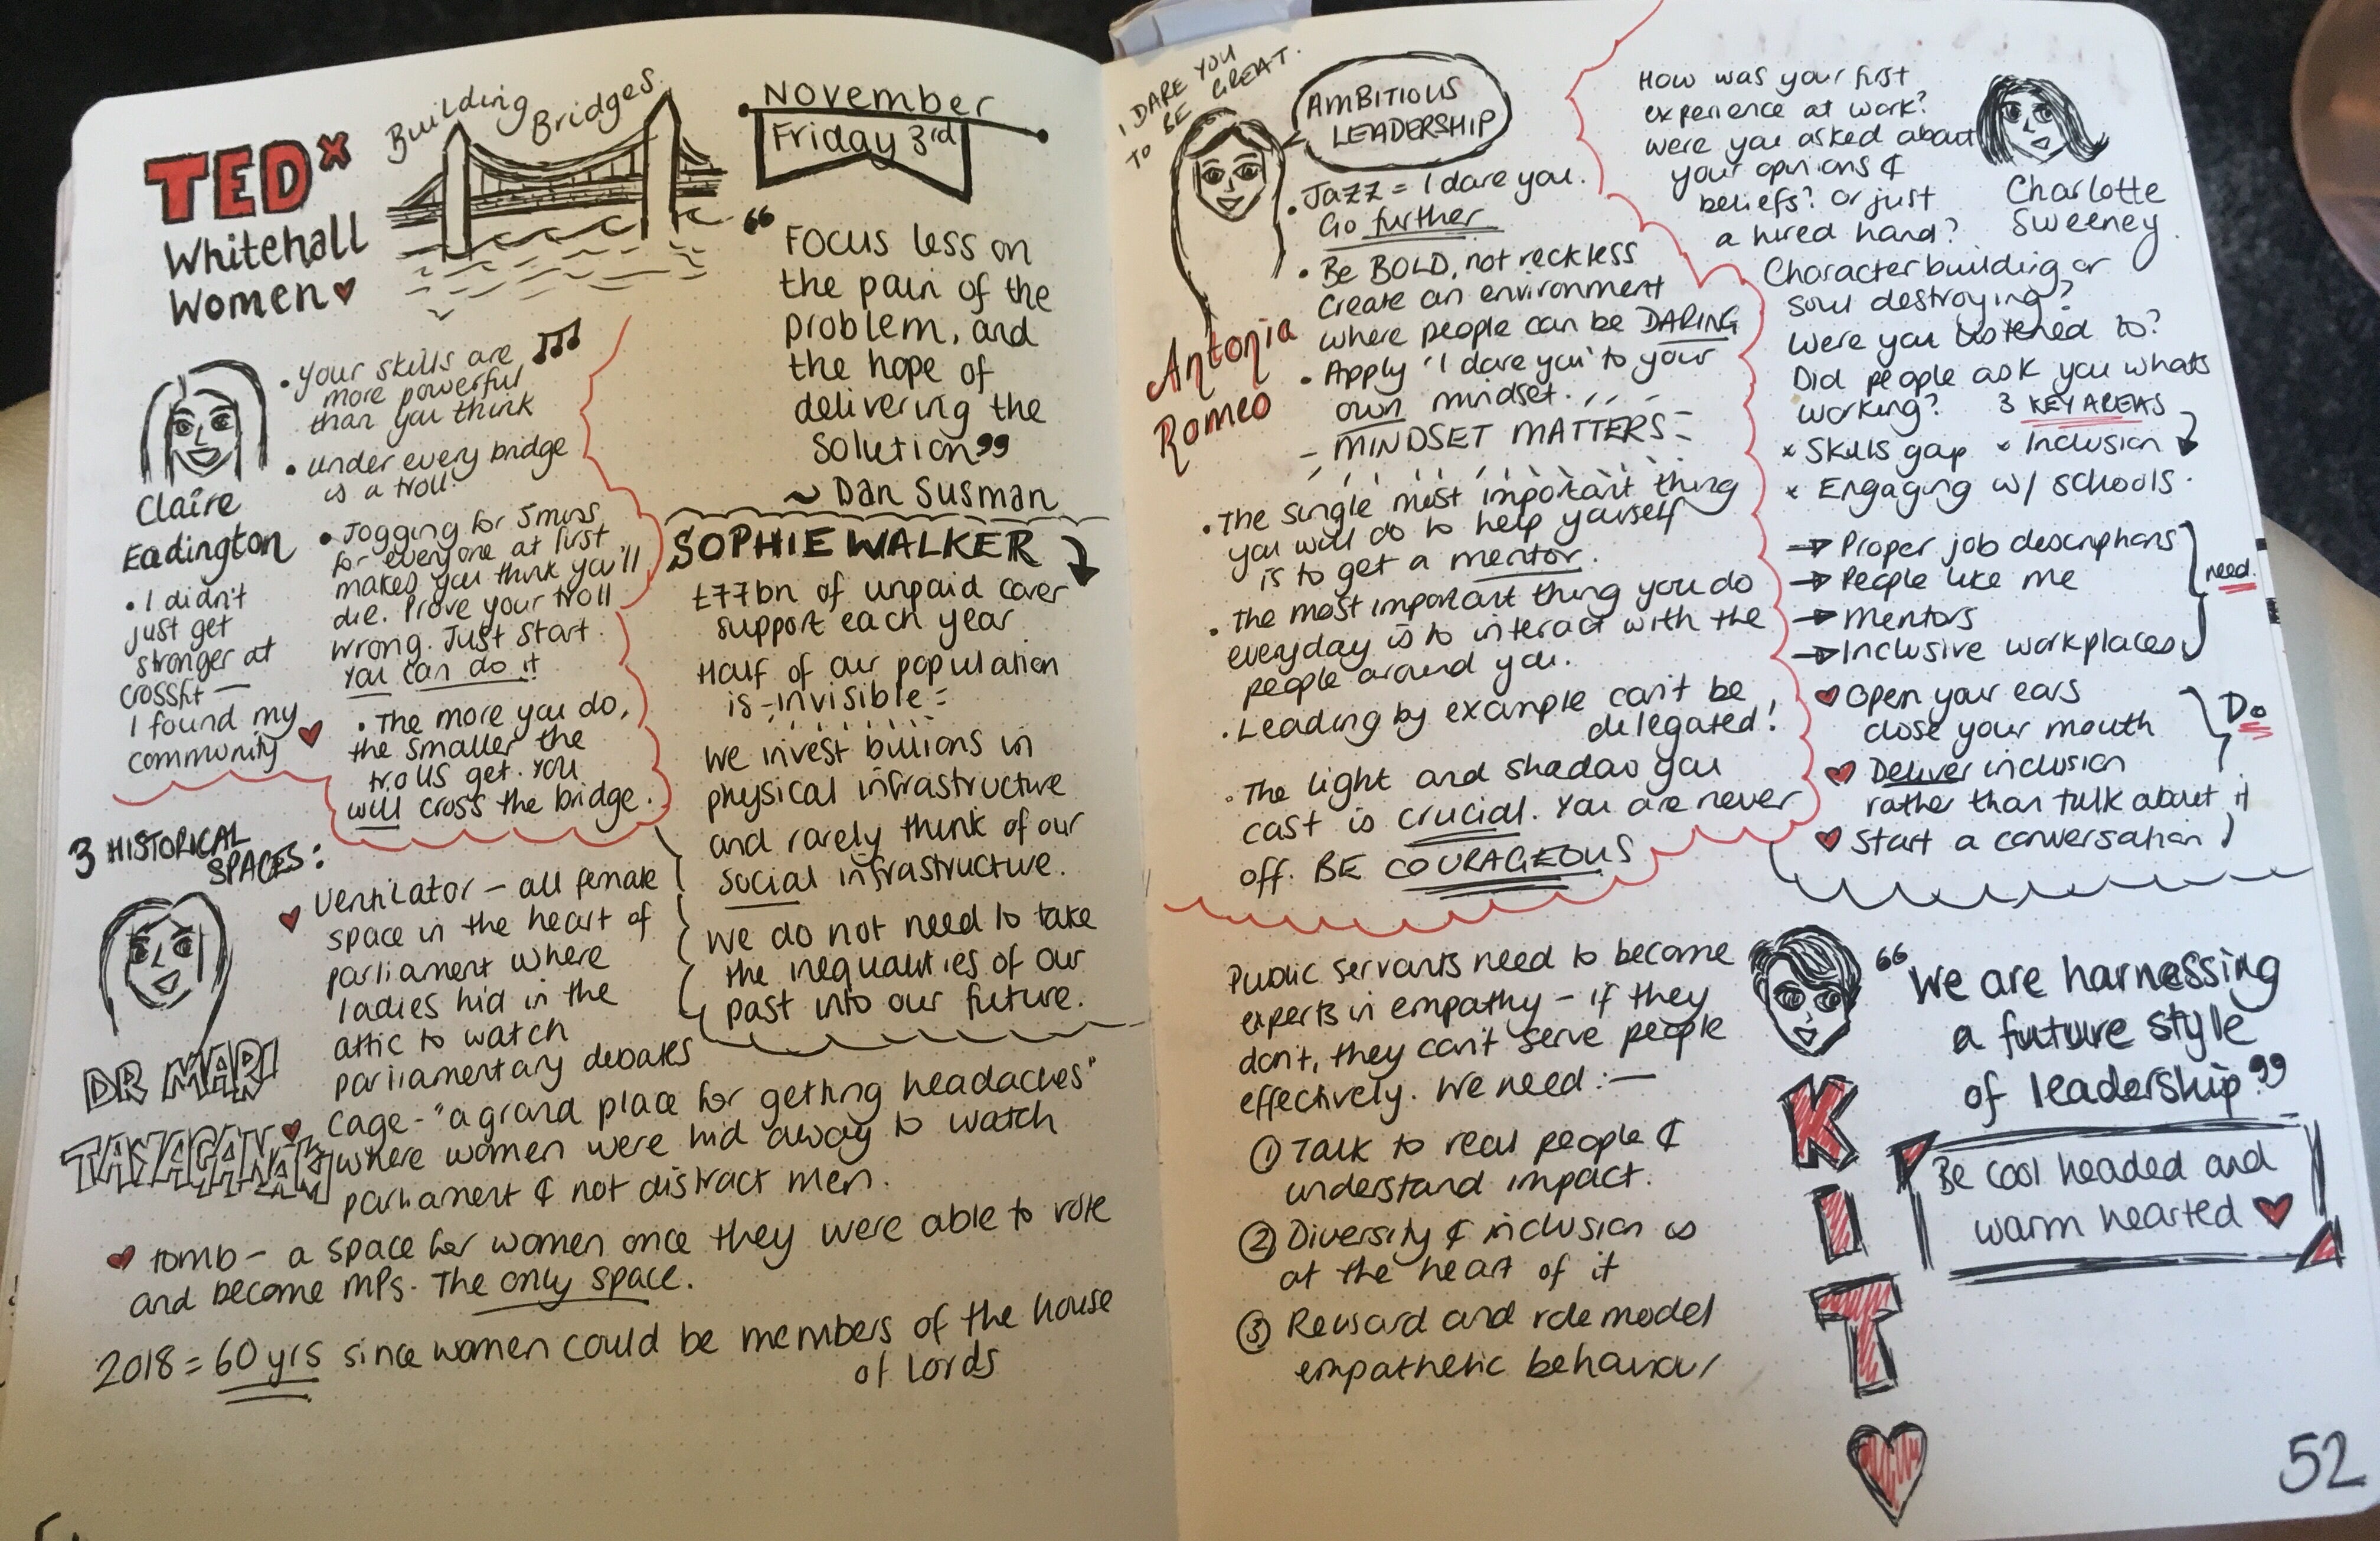 TEDx
Whitehall
Women
Building Bridges
November
Friday 3rd
"Focus less on
the pain of the
problem, and
the hope of
delivering the
solution"
~ Dan Susman
Claire
Eadington
• I didn't
just get
stronger at
crossfit —
I found my
community
• Your skills are
more powerful
than you think
• under every bridge
is a troll
• Jogging for 5mins
for everyone at first
makes you think you'll
die. Prove your troll
wrong. Just start.
You can do it
• The more you do,
the smaller the
trolls get. You
will cross the bridge.
SOPHIE WALKER
£77bn of unpaid carer
support each year
Half of our population
is - invisible -
We invest billions in
physical infrastructure
and rarely think of our
social infrastructure.
We do not need to take
the inequalities of our
past into our future.
3 HISTORICAL
SPACES:
DR MARI
TAKAYANAGI
Ventilator - all female
space in the heart of
parliament where
ladies hid in the
attic to watch
parliamentary debates
Cage - "a grand place for getting headaches"
where women were hid away to watch
parliament & not distract men.
tomb - a space for women once they were able to vote
and become MPs. The only space.
2018 = 60 yrs since women could be members of the house
of lords
I DARE YOU
TO BE GREAT.
AMBITIOUS
LEADERSHIP
Antonia
Romeo
• Jazz = I dare you.
Go further
• Be BOLD, not reckless
Create an environment
where people can be DARING
• Apply 'I dare you' to your
own mindset.
- MINDSET MATTERS -
• The single most important thing
you will do to help yourself
is to get a mentor.
• The most important thing you do
everyday is to interact with the
people around you.
• Leading by example can't be
delegated!
• The light and shadow you
cast is crucial. You are never
off. BE COURAGEOUS
How was your first
experience at work?
were you asked about
your opinions &
beliefs? or just
a hired hand?
Charlotte
Sweeney
Character building or
soul destroying?
Were you listened to?
Did people ask you whats
working? 3 KEY AREAS
x Skills gap x Inclusion
x Engaging w/ schools.
→ Proper job descriptions
→ People like me
→ Mentors
→ Inclusive workplaces
need.
Open your ears
close your mouth
Deliver inclusion
rather than talk about it
Start a conversation
Do
Public servants need to become
experts in empathy - if they
don't, they can't serve people
effectively. We need :—
① Talk to real people &
understand impact.
② Diversity & inclusion is
at the heart of it
③ Reward and role model
empathetic behaviour
KIT
"We are harnessing
a future style
of leadership"
Be cool headed and
warm hearted
52